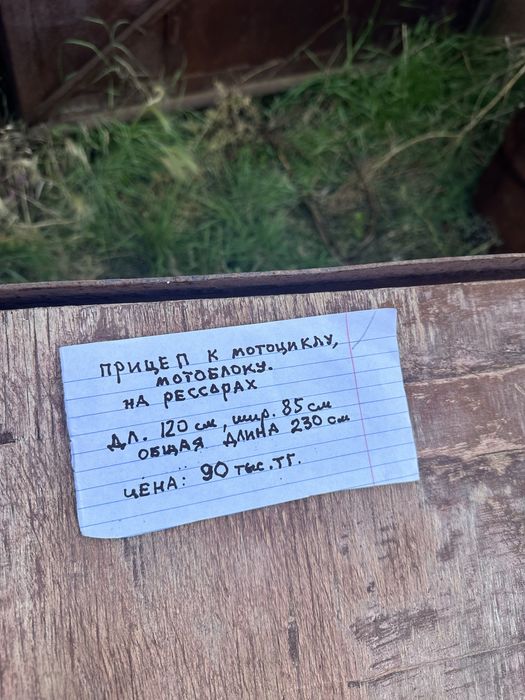 ПРИЦЕП К МОТОЦИКЛУ,
МОТОБЛОКУ.
НА РЕССОРАХ
ДЛ. 120 см, шир. 85 см
ОБЩАЯ ДЛИНА 230 см
ЦЕНА: 90 тыс. тг.